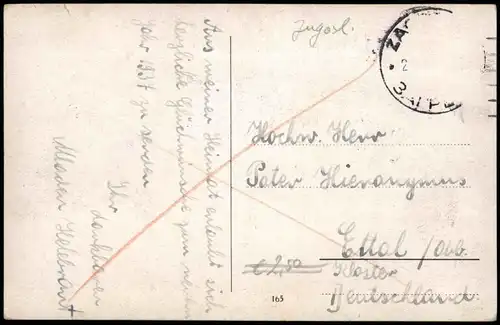 Aus meiner Heimat erlaubt sich
herzliche Glückwünsche zum neuen
Jahr 1937 zu senden
Ihr
dankbarer
Mladen
Jugosl.
ZAG
2
Hochw. Herr
Pater Hieronymus
Ettal / Obb.
€ 2,50
Kloster
Deutschland
165